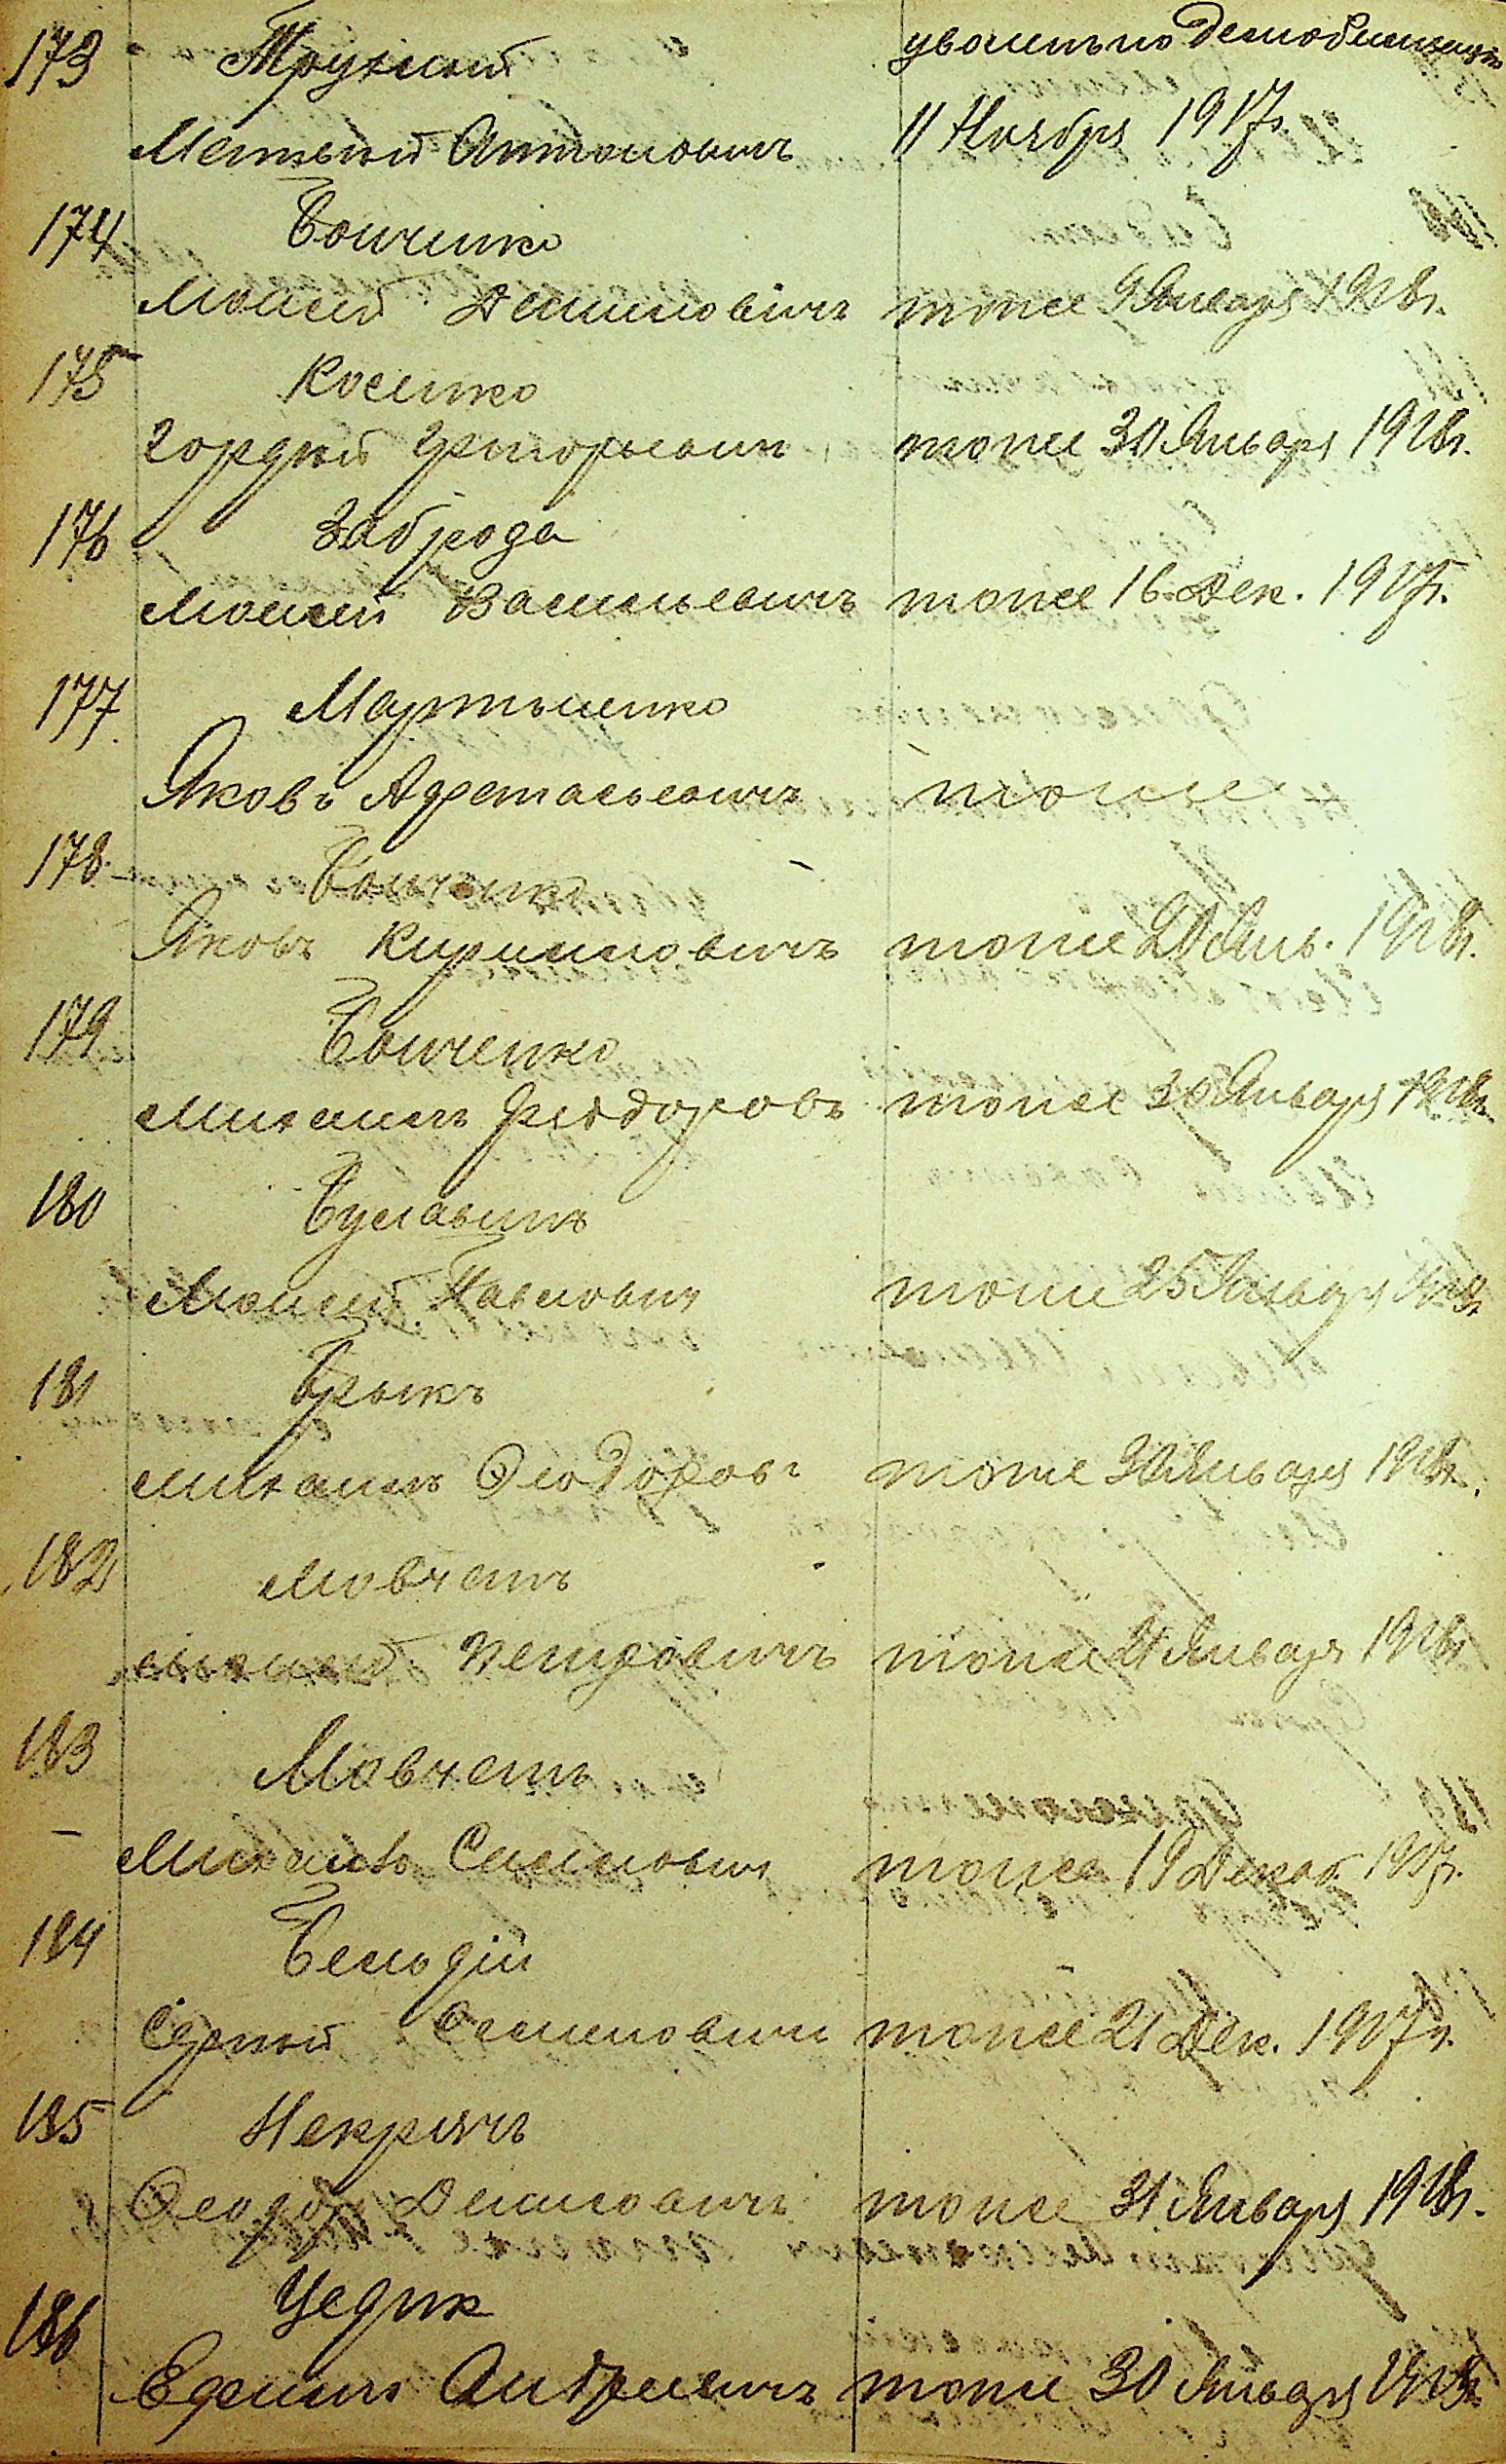 173 Трухный уволенъ по демобилизаціи
Матвѣй Антоновичъ 11 Ноября 1917г.
174 Бойченко
Моисей Даниловичъ тоже 9 Января 1918г.
175 Косенко
Гордѣй Григорьевич тоже 30 Января 1918г.
176 Заброда
Моисей Васильевичъ тоже 16 Дек. 1917г.
177 Мартыненко
Яковъ Афанасьевичъ тоже
178 Бойченко
Яковъ Кириловичъ тоже 20 Янв. 1918г.
179 Бойченко
Михаилъ Феодоровъ тоже 30 Января 1918г.
180
Моисей Павлович тоже 25 Января 1918г.
181 Брыкъ
Михаилъ Феодоровъ тоже 30 Января 1918г.
182 Мовчанъ
Петровичъ тоже 21 Января 1918г.
183 Мовчанъ
Михаилъ тоже 19 Декаб. 1917г.
184
Сергѣй тоже 21 Дек. 1917г.
185 Некрячъ
Феодоръ Даниловичъ тоже 31 Января 1918г.
186 Цедик
Ефимъ Андреевичъ тоже 30 Января 1918г.